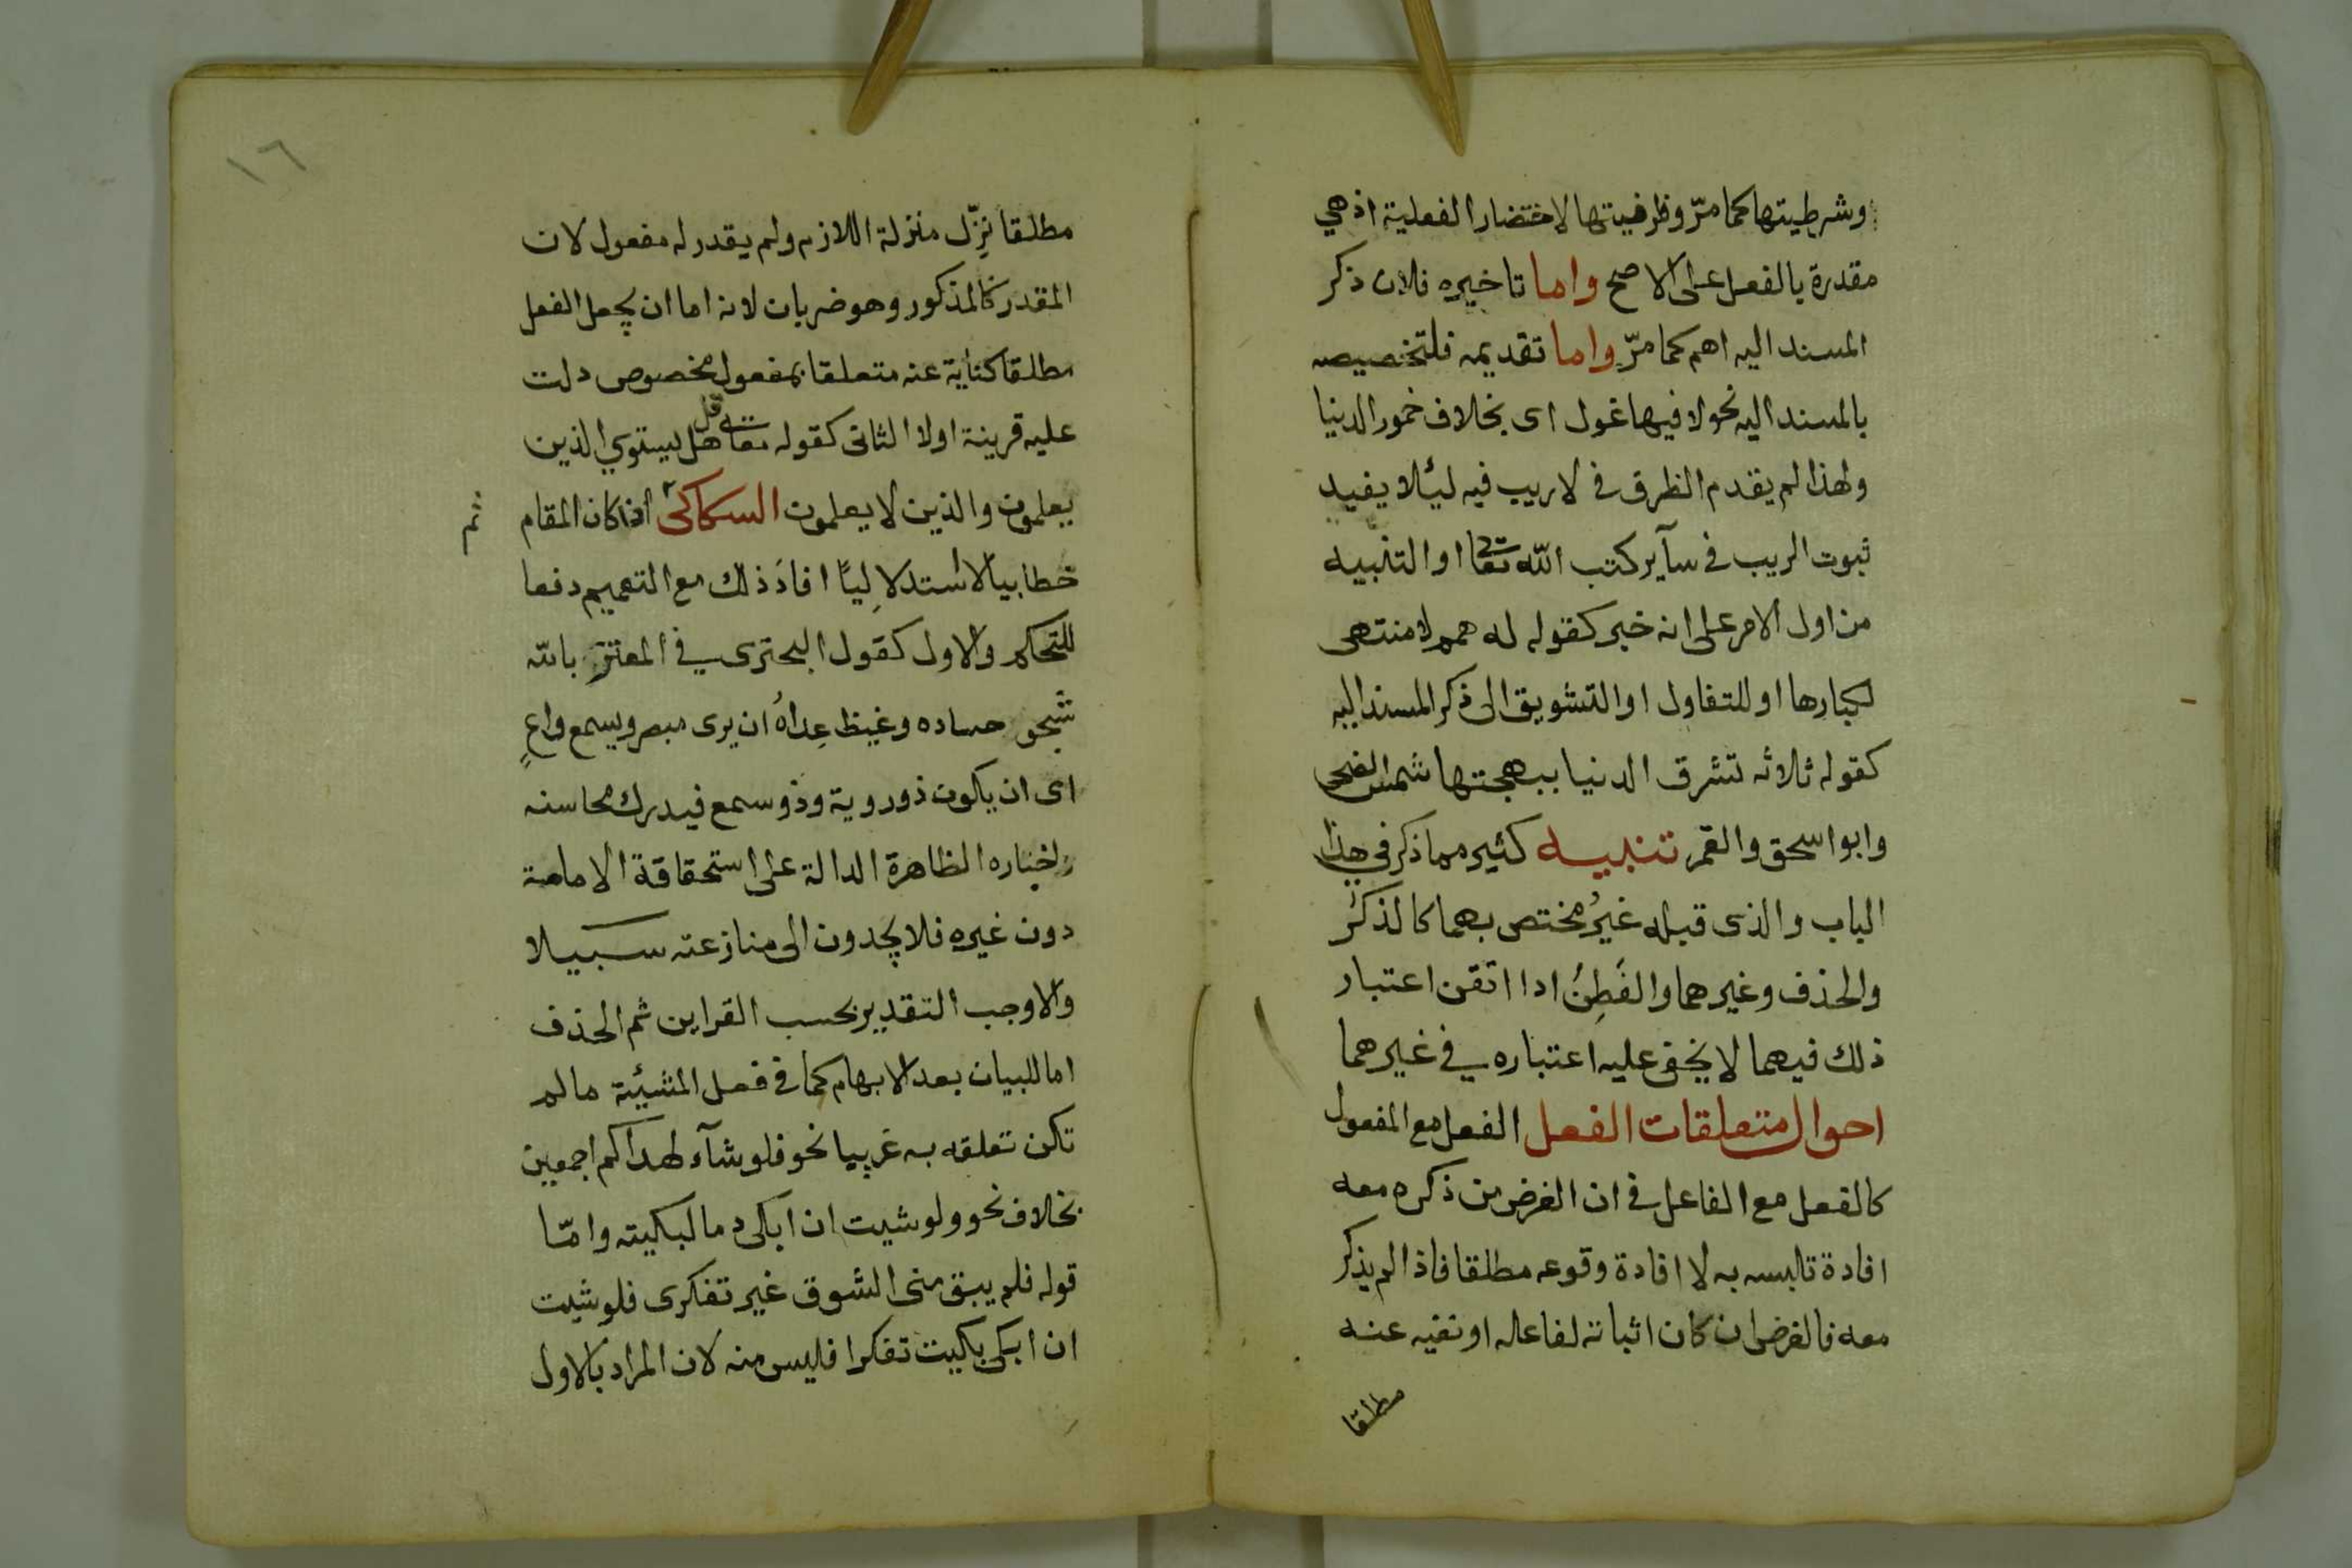 وشرطيتها كما مرّ وظرفيتها لاختصار الفعلية اذ هي
مقدرة بالفعل على الاصح واما تاخيره فلان ذكر
المسند اليه اهم كما مرّ واما تقديمه فلتخصيصه
بالمسند اليه نحو لا فيها غول اى بخلاف خمور الدنيا
ولهذا لم يقدم الظرف في لا ريب فيه لئلا يفيد
ثبوت الريب في سآير كتب اللّه تعا او التنبيه
من اول الامر على انه خبر كقوله له همم لا منتهى
لكبارها او للتفاول او التشويق الى ذكر المسند اليه
كقوله ثلاثه تشرق الدنيا ببهجتها شمس الضحى
وابو اسحق والقمر تنبيه كثير مما ذكر في هذا
الباب والذى قبله غيرُ مختص بهما كالذكر
والحذف وغيرهما والفَطِنُ ادا اتقن اعتبار
ذلك فيهما لا يخفى عليه اعتباره في غيرهما
احوال متعلقات الفعل الفعل مع المفعول
كالفعل مع الفاعل في ان الغرض من ذكره معه
افادة تلبسه به لا افادة وقوعه مطلقا فاذا لم يذكر
معه فالغرض ان كان اثباته لفاعله او نفيه عنه
مطلقا
١٦
مطلقا نزّل منزلة اللازم ولم يقدر له مفعول لان
المقدر كالمذكور وهو ضربان لانه اما ان يجعل الفعل
مطلقا كناية عنه متعلقا بمفعول مخصوص دلت
عليه قرينة اولا الثانى كقوله تعا قل هل يستوي الذين
يعلمون والذين لا يعلمون السكاكى اذا كان المقام
ثم
خطابيا لا استدلاليًا افادَ ذلك مع التعميم دفعا
للتحكم والاول كقول البحترى في المعتز بالله
شجو حساده وغيظ عِداهُ ان يرى مبصر ويسمع واعٍ
اى ان يكون ذو روية وذو سمع فيدرك محاسنه
واخباره الظاهرة الدالة على استحقاقة الامامة
دون غيره فلا يجدون الى منازعته سبيلا
والا وجب التقدير بحسب القراين ثم الحذف
اما للبيان بعد الابهام كما في فعل المشئة مالم
تكن تعلقه به غريبا نحو فلو شآء لهداكم اجمعين
بخلاف نحو ولو شيت ان ابكى دما لبكيته وامّا
قوله فلم يبق منى الشوق غير تفكرى فلو شيت
ان ابكى بكيت تفكرا فليس منه لان المراد بالاول